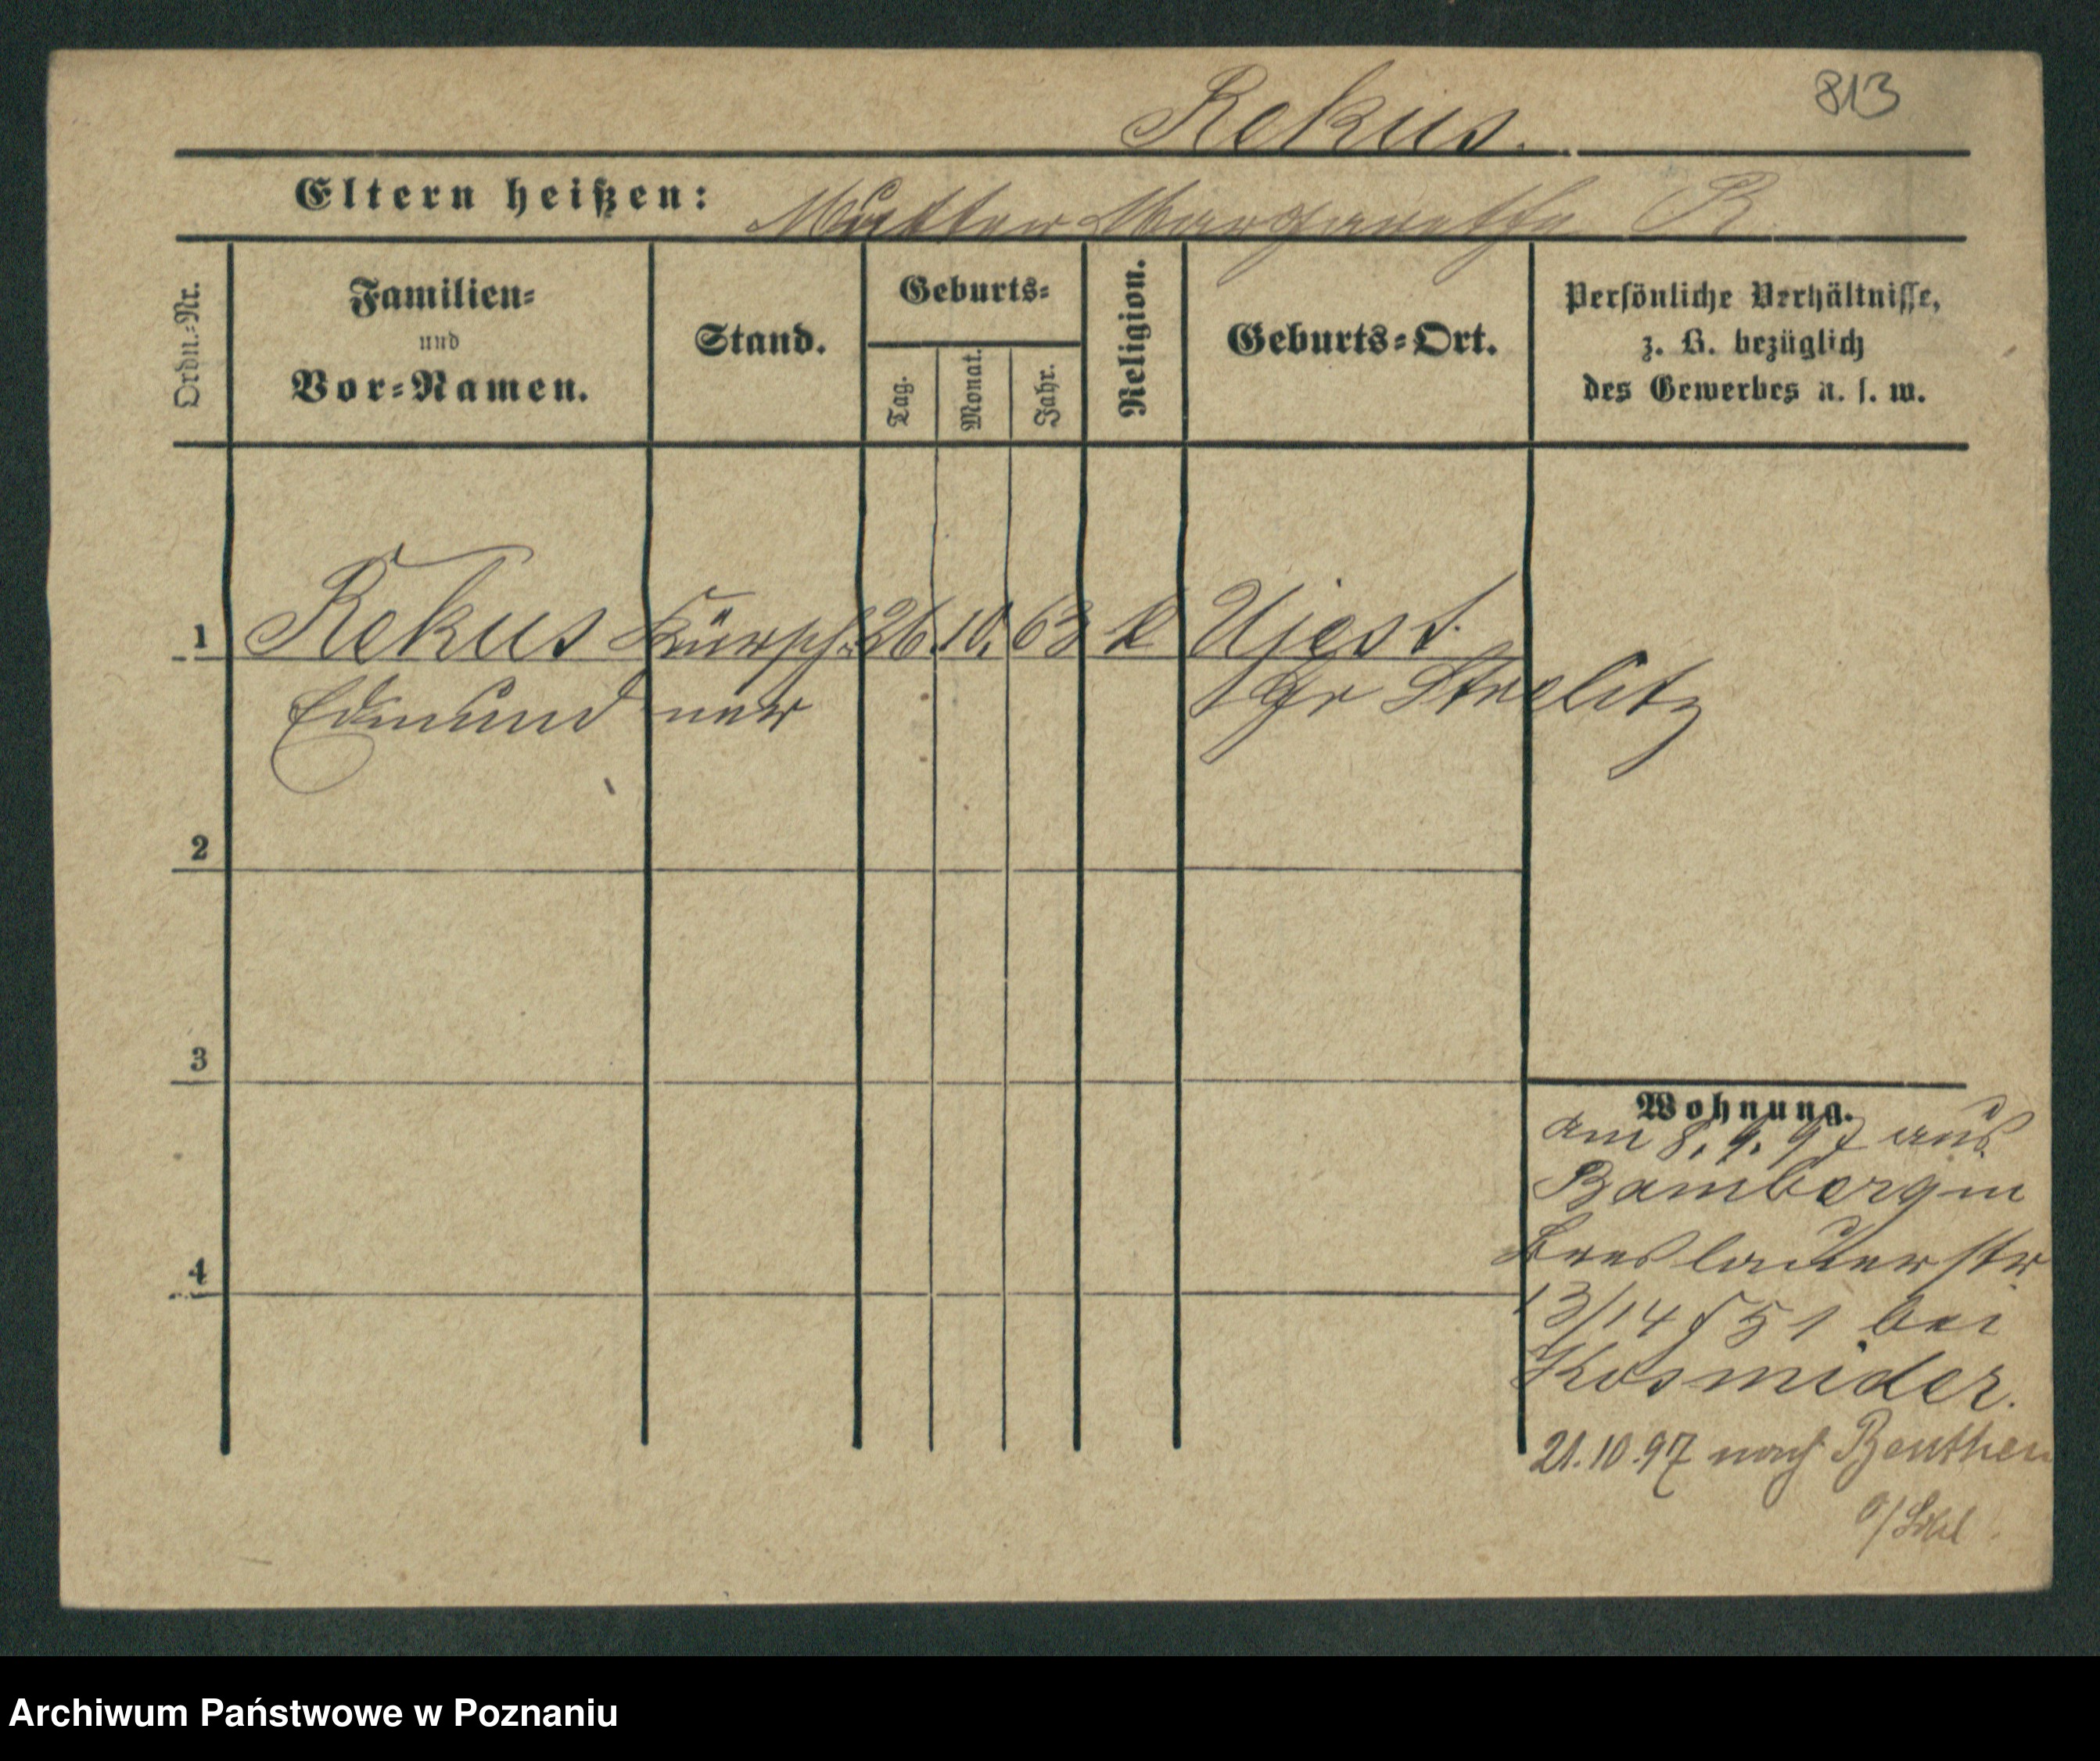 813
Rekus.
Eltern heißen: Mutter Margarethe R.
Ordn.-Nr.
Familien-
und
Vor-Namen.
Stand.
Geburts-
Tag.
Monat.
Jahr.
Religion.
Geburts-Ort.
Persönliche Verhältnisse,
z. B. bezüglich
des Gewerbes u. s. w.
1 Rekus Kürsch- 26. 10. 63 k Ujest.
Edmund ner Gr Strelitz
2
3
4
Wohnung.
am 8. 9. 97 aus
Bamberg in
Breslauerstr
13/14 bei
Kosmider.
21.10.97 nach Beuthen
o/Schl
Archiwum Państwowe w Poznaniu